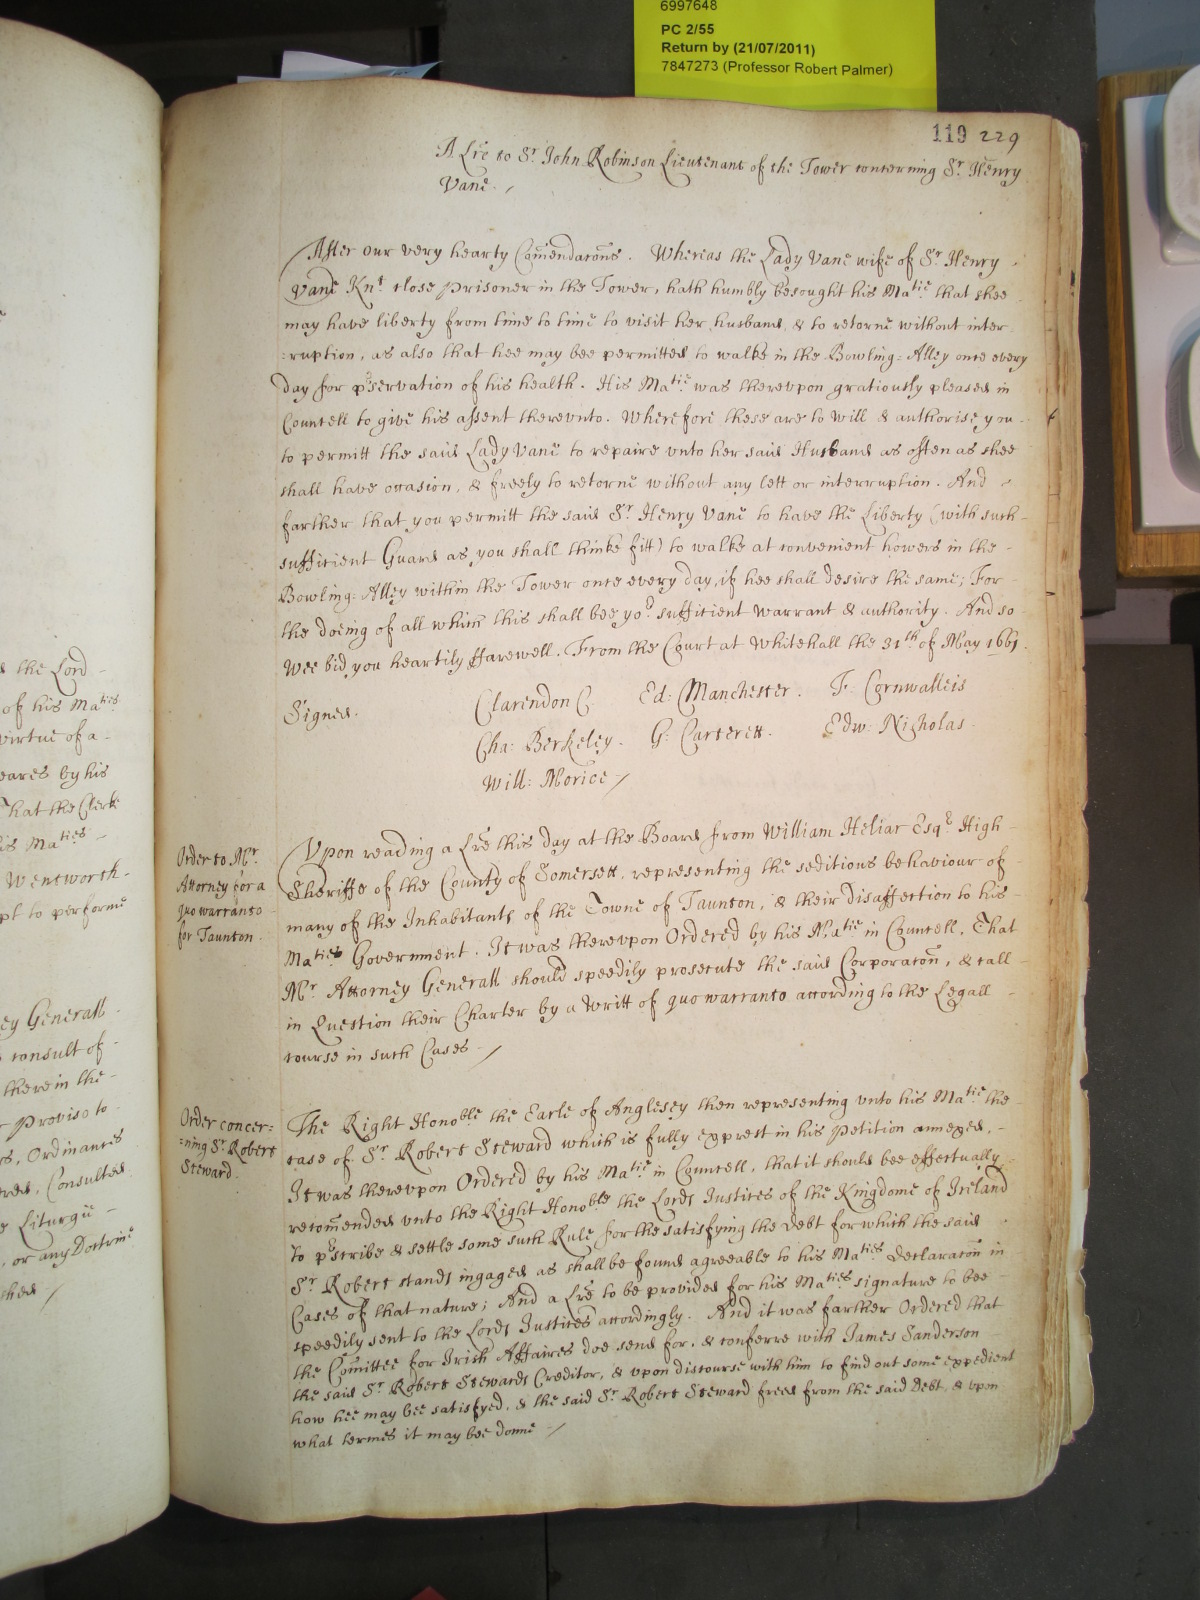 6997648
PC 2/55
Return by (21/07/2011)
7847273 (Professor Robert Palmer)
119 229
A Lre to Sr John Robinson Lieutenant of the Tower concerning Sr Henry
Vane.
After our very hearty Comendacons. Whereas the Lady Vane wife of Sr Henry
Vane Knt close prisoner in the Tower, hath humbly besought his Matie that shee
may have liberty from time to time to visit her husband, & to retorne without inter-
:ruption, as also that hee may bee permitted to walke in the Bowling-Alley once every
day for pservation of his health. His Matie was therevpon gratiously pleased in
Councell to give his assent therevnto. Wherefore these are to will & authorise you
to permitt the said Lady Vane to repaire vnto her said Husband as often as shee
shall have occasion, & freely to retorne without any lett or interruption. And
farther that you permitt the said Sr Henry Vane to have the Liberty (with such
sufficient Guard as you shall thinke fitt) to walke at convenient howers in the
Bowling-Alley within the Tower once every day, if hee shall desire the same; For
the doeing of all which this shall bee yor sufficient warrant & authority. And so
Wee bid you heartily ffarewell. From the Court at Whitehall the 31th of May 1661.
Signed.
Clarendon C. Ed: Manchester. F: Cornwalleis
Cha: Berkeley. G: Carterett. Edw: Nicholas.
Will: Morice
Order to Mr
Attorney for a
quo warranto
for Taunton.
Vpon reading a Lre this day at the Board from William Heliar Esqr High
Sheriffe of the County of Somersett, representing the seditious behaviour of
many of the Inhabitants of the Towne of Taunton, & their disaffection to his
Maties Government. It was therevpon Ordered by his Matie in Councell, That
Mr Attorney Generall should speedily prosecute the said Corporacon, & call
in Question their Charter by a Writt of quo warranto according to the Legall
course in such Cases
Order concer-
:ning Sr Robert
Steward.
The Right Honoble the Earle of Anglesey then representing vnto his Matie the
case of Sr Robert Steward which is fully exprest in his Petition annexed,
It was therevpon Ordered by his Matie in Councell, that it should bee effectually
recomended vnto the Right Honoble the Lords Justices of the Kingdome of Ireland
To pscribe & settle some such Rule for the satisfying the Debt for which the said
Sr Robert stands ingaged as shall be found agreeable to his Maties Declaracon in
Cases of that nature; And a Lre to be provided for his Maties signature to bee
speedily sent to the Lords Justices accordingly. And it was farther Ordered that
the Comittee for Irish Affaires doe send for, & conferre with James Sanderson
the said Sr Robert Stewards Creditor, & vpon discourse with him to find out some expedient
how hee may bee satisfyed, & the said Sr Robert Steward freed from the said Debt, & vpon
what termes it may bee donne
the Lord
of his Maties
virtue of a
eares by his
That the Clerk
is Maties
Wentworth
pt to performe
ey Generall
consult of
therein the
Proviso to
rs, Ordinances
Consulted
Liturgie
, or any Doctrine